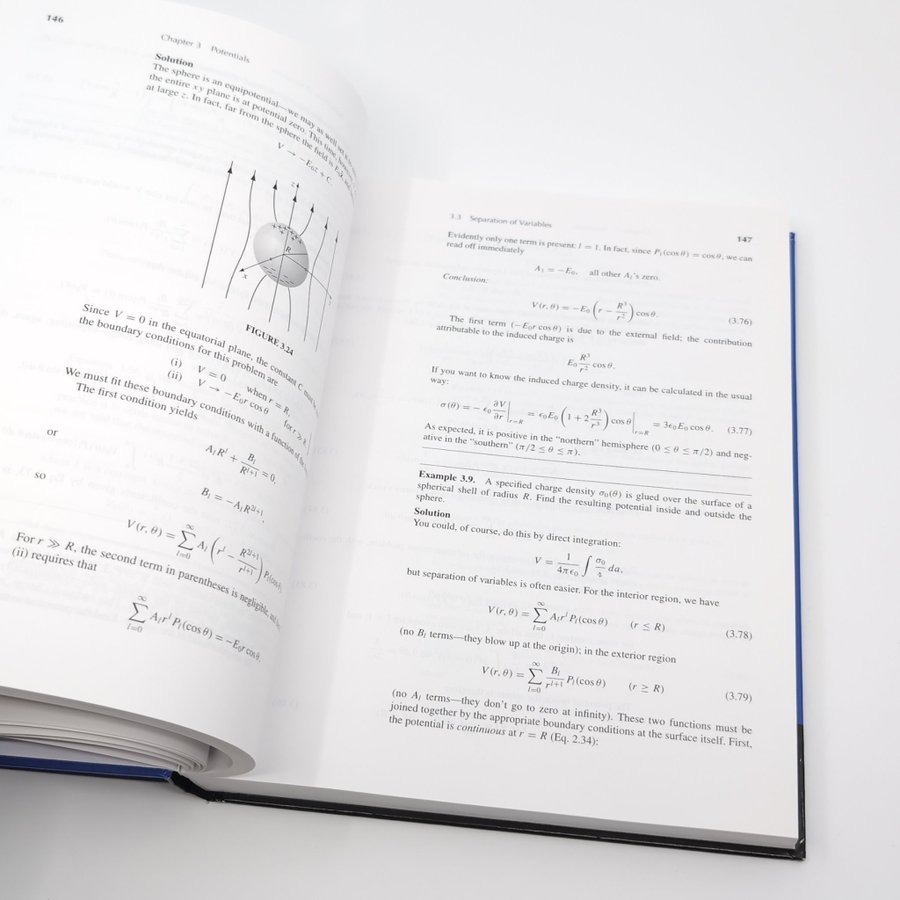 146
Chapter 3 Potentials
Solution
The sphere is an equipotential—we may as well set it to
the entire xy plane is at potential zero. This time,
at large z. In fact, far from the sphere the field is E₀ẑ,
V → −E₀z + C.
z
R
x
FIGURE 3.24
Since V = 0 in the equatorial plane, the constant C must
the boundary conditions for this problem are
(i) V = 0 when r = R,
(ii) V → −E₀r cos θ for r ≫ R.
We must fit these boundary conditions with a function of the
The first condition yields
A_l R^l + B_l/R^{l+1} = 0,
or
B_l = −A_l R^{2l+1},
so
V(r, θ) = ∑_{l=0}^∞ A_l (r^l − R^{2l+1}/r^{l+1}) P_l(cos θ).
For r ≫ R, the second term in parentheses is negligible, and
(ii) requires that
∑_{l=0}^∞ A_l r^l P_l(cos θ) = −E₀r cos θ.
3.3 Separation of Variables
147
Evidently only one term is present: l = 1. In fact, since P₁(cos θ) = cos θ, we can
read off immediately
A₁ = −E₀, all other A_l's zero.
Conclusion:
V(r, θ) = −E₀ (r − R³/r²) cos θ. (3.76)
The first term (−E₀r cos θ) is due to the external field; the contribution
attributable to the induced charge is
E₀ R³/r² cos θ.
If you want to know the induced charge density, it can be calculated in the usual
way:
σ(θ) = −ϵ₀ ∂V/∂r |_{r=R} = ϵ₀E₀ (1 + 2 R³/r³) cos θ |_{r=R} = 3ϵ₀E₀ cos θ. (3.77)
As expected, it is positive in the “northern” hemisphere (0 ≤ θ ≤ π/2) and neg-
ative in the “southern” (π/2 ≤ θ ≤ π).
Example 3.9. A specified charge density σ₀(θ) is glued over the surface of a
spherical shell of radius R. Find the resulting potential inside and outside the
sphere.
Solution
You could, of course, do this by direct integration:
V = 1/4πϵ₀ ∫ σ₀/𝓇 da,
but separation of variables is often easier. For the interior region, we have
V(r, θ) = ∑_{l=0}^∞ A_l r^l P_l(cos θ) (r ≤ R) (3.78)
(no B_l terms—they blow up at the origin); in the exterior region
V(r, θ) = ∑_{l=0}^∞ B_l/r^{l+1} P_l(cos θ) (r ≥ R) (3.79)
(no A_l terms—they don't go to zero at infinity). These two functions must be
joined together by the appropriate boundary conditions at the surface itself. First,
the potential is continuous at r = R (Eq. 2.34):